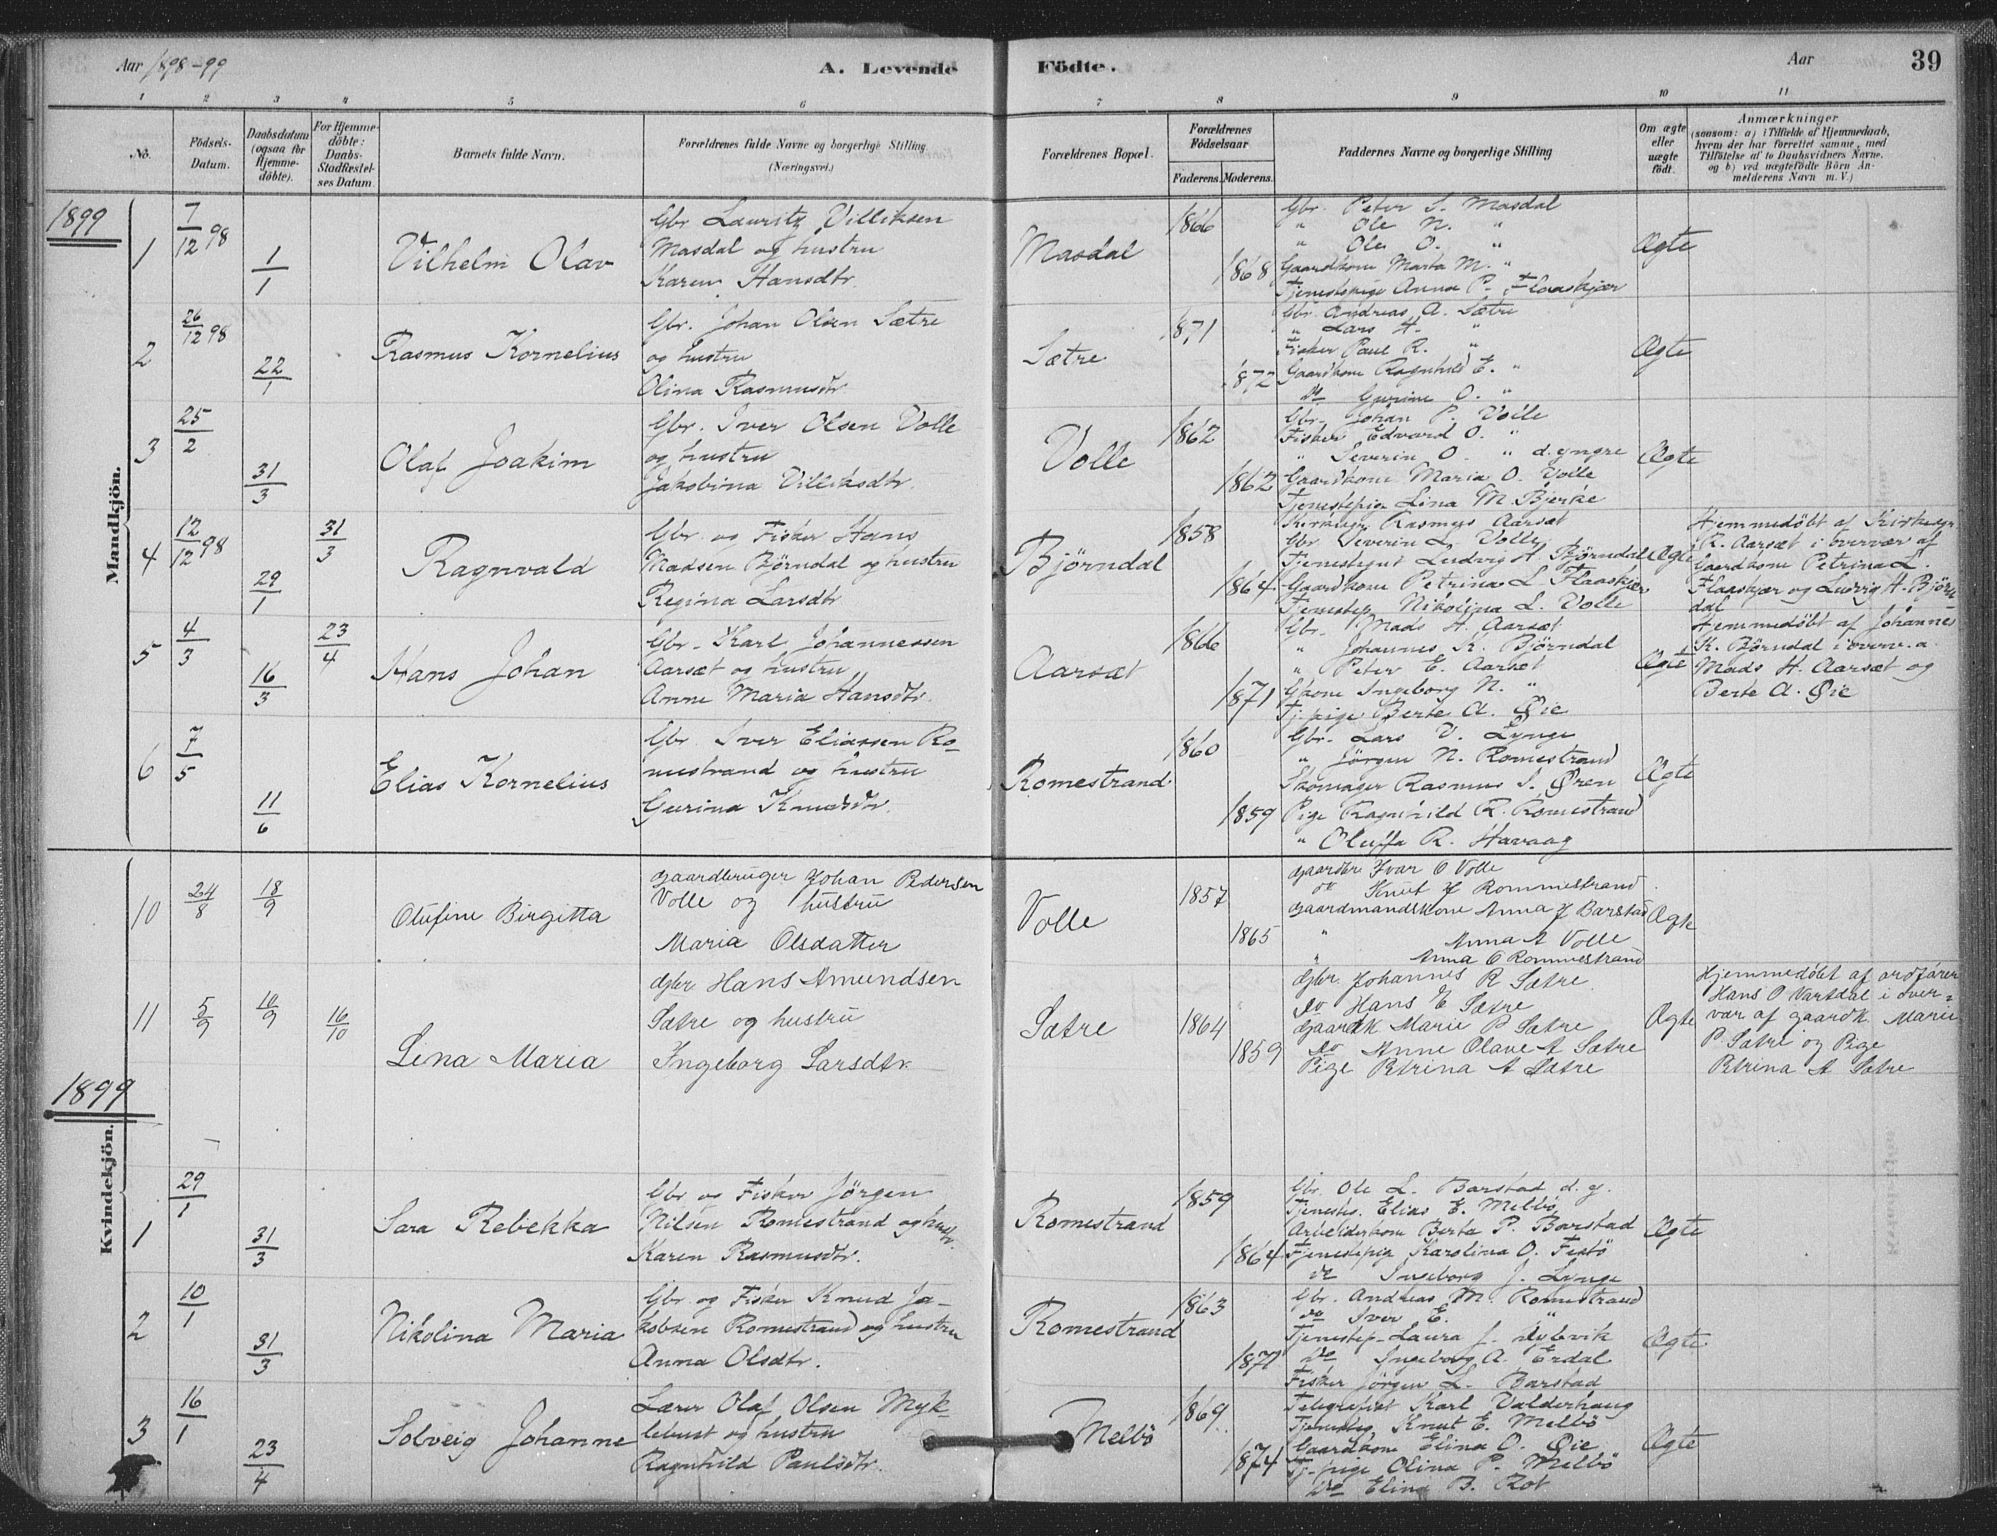 Aar 1898-99
A. Levende Födte.
Aar
39
1 2 3 4 5 6 7 8 9 10 11
No.
Födsels-Datum.
Daabsdatum (ogsaa for Hjemmedöbte).
For Hjemmedöbte: Daabs-Stadfæstelses Datum.
Barnets fulde Navn.
Forældrenes fulde Navne og borgerlige Stilling (Næringsvei.)
Forældrenes Bopæl.
Forældrenes Födselsaar
Faderens. Moderens.
Faddernes Navne og borgerlige Stilling
Om ægte eller uægte födt.
Anmærkninger
(saasom: a) i Tilfælde af Hjemmedaab, hvem der har forrettet samme, med Tilföielse af to Daabsvidners Navne, og b) ved uægtefödte Börn Anmelderens Navn m. V.)
1899
Mandkjön.
1
7/12 98
1/1
Vilhelm Olav
Gbr Lauritz Villiksen
Masdal og hustru
Karen Hansdtr.
Masdal
1866
1868
Gbr. Peter S. Masdal
" Ole N. "
" Ole O. "
Gaardkone Marta M. "
Tjenestepige Anna P. Flaaskjær
Ægte
2
26/12 98
22/1
Rasmus Kornelius
Gbr. Johan Olsen Sætre
og hustru
Olina Rasmusdtr
Sætre
1871
1872
Gbr. Andreas A. Sætre
" Lars H. "
Fisker Paul R. "
Gaardkone Ragnhild E. "
do Gurine O. "
Ægte
3
25/2
31/3
Olaf Joakim
Gbr. Iver Olsen Volle
og hustru
Jakobina Villiksdtr.
Volle
1862
1862
Gbr. Johan P. Volle
Fisker Edvard O. "
" Severin O. " d. yngre
Gaardkone Maria O. Volle
Tjenestepige Lina M. Bjerke
Ægte
4
12/12 98
29/1
31/3
Ragnvald
Gbr. og Fisker Hans
Madsen Björndal og hustru
Regina Larsdtr.
Björndal
1858
1864
Kirkesgr Rasmus Aarsæt
Gbr. Severin L. Volle
Tjenestegut Ludvig H. Björndal
Gaardkone Petrina L Flaaskjær
Tjenestep. Nikolina L. Volle
Ægte
Hjemmedöbt af Kirkesgr
R. Aarsæt i overvær af
Gaardkone Petrina L.
Flaaskjær og Ludvig H. Björn-
dal
5
4/3
16/3
23/4
Hans Johan
Gbr. Karl Johannessen
Aarsæt og hustru
Anne Maria Hansdtr.
Aarsæt
1866
1871
Gbr. Mads H. Aarsæt
" Johannes K. Björndal
" Peter E. Aarsæt
Gkone Ingeborg N. "
Tj. pige Berte A. Øie
Ægte
Hjemmedöbt af Johannes
K. Björndal i overv. a.
Mads H. Aarsæt og
Berte A. Øie
6
7/5
11/6
Elias Kornelius
Gbr. Iver Eliassen Ro-
mestrand og hustru
Gurina Knudsdtr.
Romestrand
1860
1859
Gbr. Lars V. Lynge
" Jörgen N. Romestrand
Skomager Rasmus S. Øren
Pige Ragnhild R. Romestrand
" Oluffa R. Havaag
Ægte
10
24/8
18/9
Olufine Birgitta
Gaardbruger Johan Pedersen
Volle og hustru
Maria Olsdatter
Volle
1857
1865
Gaardbr Ivar O Volle
do Knut J Rommestrand
Gaardmandskone Anna J Barstad
" Anna A Volle
" Anna O Rommestrand
Ægte
11
5/9
10/9
16/10
Lina Maria
Gbr. Hans Amundsen
Sætre og hustru
Ingeborg Larsdtr.
Sætre
1864
1859
Gbr. Johannes R Sætre
do Hans E Sætre
Gaardk Marie P Sætre
do Anne Olave A Sætre
Pige Petrina A Sætre
Ægte
Hjemmedøbt af ordfører
Hans O Vartdal i over-
vær af gaardk. Marie
P. Sætre og Pige
Petrina A Sætre
1899
Kvindekjön.
1
29/1
31/3
Sara Rebekka
Gbr og Fisker Jörgen
Nilsen Romestrand og hustr.
Karen Rasmusdtr.
Romestrand
1859
1864
Gbr. Ole L. Barstad d. y.
Tjenestes. Elias E. Melbö
Arbeiderkone Berta P. Barstad
Tjenestepig Karolina O. Festö
do Ingeborg J. Lynge
Ægte
2
10/1
31/3
Nikolina Maria
Gbr og Fisker Knud Ja-
kobsen Romestrand og hustru
Anna Olsdtr.
Romestrand
1863
1871
Gbr. Andreas M. Romestrand
do Iver E. "
Tjenestep. Laura J. Dybvik
do Ingeborg A. Erdal
Fisker Jörgen L. Barstad
Ægte
3
16/1
23/4
Solveig Johanne
Lærer Olaf Olsen Myk-
lebust og hustru
Ragnhild Paulsdtr.
Melbö
1869
1874
Telegrafist Karl Valderhaug
Tjenestg Knut E. Melbö
Gaardkone Elina O. Øie
Tj. pige Olina P. Melbö
do Elina B. Rot
Ægte